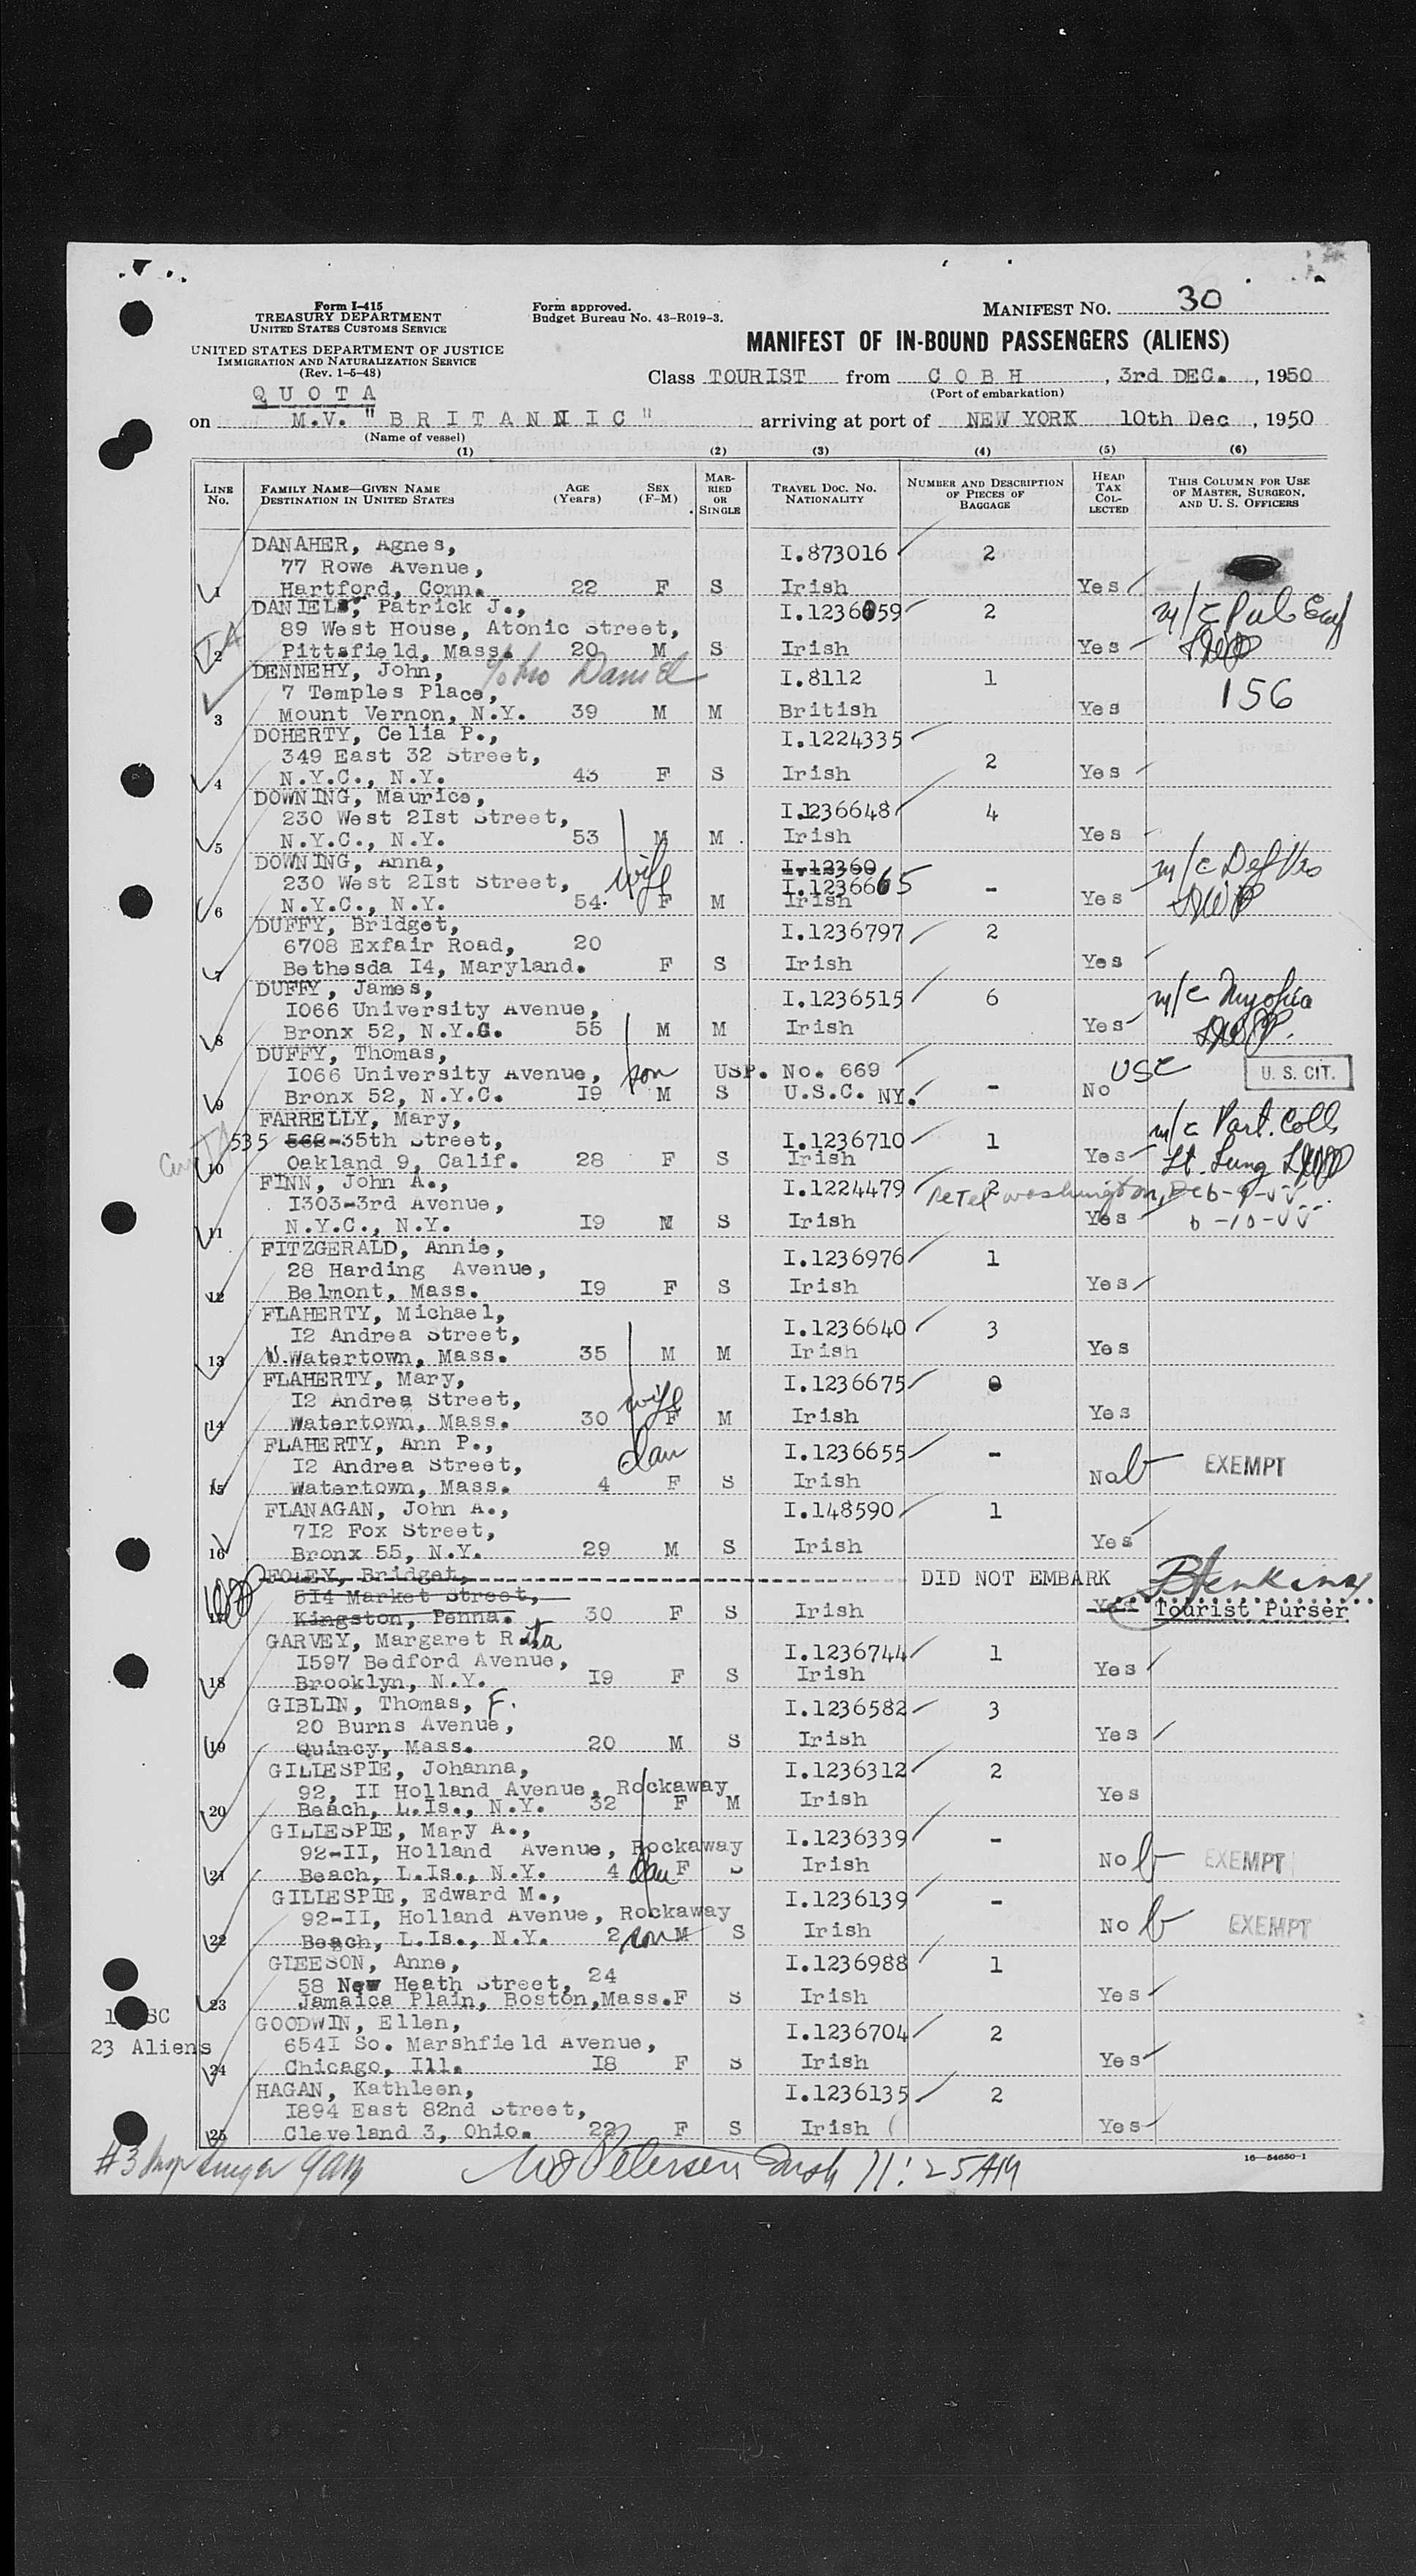 Form I-415
TREASURY DEPARTMENT
UNITED STATES CUSTOMS SERVICE
Form approved.
Budget Bureau No. 43-R019-3.
MANIFEST NO. 30
UNITED STATES DEPARTMENT OF JUSTICE
IMMIGRATION AND NATURALIZATION SERVICE
(Rev. 1-5-48)
MANIFEST OF IN-BOUND PASSENGERS (ALIENS)
QUOTA
Class TOURIST from COBH, 3rd DEC., 1950
(Port of embarkation)
on M.V. "BRITANNIC" arriving at port of NEW YORK 10th Dec, 1950
(Name of vessel)
(1) (2) (3) (4) (5) (6)
LINE NO. FAMILY NAME—GIVEN NAME DESTINATION IN UNITED STATES AGE (Years) SEX (F-M) MARRIED OR SINGLE TRAVEL DOC. NO. NATIONALITY NUMBER AND DESCRIPTION OF PIECES OF BAGGAGE HEAD TAX COLLECTED THIS COLUMN FOR USE OF MASTER, SURGEON, AND U. S. OFFICERS
DANAHER, Agnes, I.873016 2
77 Rowe Avenue,
1 Hartford, Conn. 22 F S Irish Yes
DANIELS, Patrick J., I.1236059 2 m/c
89 West House, Atonic Street,
2 Pittsfield, Mass. 20 M S Irish Yes
DENNEHY, John, John Daniel I.8112 1 156
7 Temples Place,
3 Mount Vernon, N.Y. 39 M M British Yes
DOHERTY, Celia P., I.1224335
349 East 32 Street, 2
4 N.Y.C., N.Y. 43 F S Irish Yes
DOWNING, Maurice, I.1236648 4
230 West 2Ist Street,
5 N.Y.C., N.Y. 53 M M Irish Yes
DOWNING, Anna, I.12360 m/c
230 West 2Ist Street, wife I.1236665 -
6 N.Y.C., N.Y. 54. F M Irish Yes
DUFFY, Bridget, I.1236797 2
6708 Exfair Road, 20
7 Bethesda I4, Maryland. F S Irish Yes
DUFFY, James, I.1236515 6 m/c Myopia
I066 University Avenue,
8 Bronx 52, N.Y.C. 55 M M Irish Yes
DUFFY, Thomas,
I066 University Avenue, son USP. No. 669 - USC U. S. CIT.
9 Bronx 52, N.Y.C. I9 M S U.S.C. NY. No
FARRELLY, Mary, m/c Part. Coll.
535 568-35th Street, I.1236710 1
10 Oakland 9, Calif. 28 F S Irish Yes Lt. Lung
FINN, John A., I.1224479 2
I303-3rd Avenue, Washington,
11 N.Y.C., N.Y. I9 M S Irish Yes
FITZGERALD, Annie, I.1236976 1
28 Harding Avenue,
12 Belmont, Mass. I9 F S Irish Yes
FLAHERTY, Michael, I.1236640 3
I2 Andrea Street,
13 W.Watertown, Mass. 35 M M Irish Yes
FLAHERTY, Mary, I.1236675 0
I2 Andrea Street, wife
14 Watertown, Mass. 30 F M Irish Yes
FLAHERTY, Ann P., dau I.1236655 -
I2 Andrea Street, EXEMPT
15 Watertown, Mass. 4 F S Irish No
FLANAGAN, John A., I.148590 1
7I2 Fox Street,
16 Bronx 55, N.Y. 29 M S Irish Yes
FOLEY, Bridget, DID NOT EMBARK BJenkins
5I4 Market Street,
17 Kingston, Penna. 30 F S Irish Yes Tourist Purser
GARVEY, Margaret Rita I.1236744 1
I597 Bedford Avenue,
18 Brooklyn, N.Y. I9 F S Irish Yes
GIBLIN, Thomas, F. I.1236582 3
20 Burns Avenue,
19 Quincy, Mass. 20 M S Irish Yes
GILLESPIE, Johanna, I.1236312 2
92, II Holland Avenue, Rockaway
20 Beach, L.Is., N.Y. 32 F M Irish Yes
GILLESPIE, Mary A., I.1236339 -
92-II, Holland Avenue, Rockaway
21 Beach, L.Is., N.Y. 4 dau F S Irish No EXEMPT
GILLESPIE, Edward M., I.1236139 -
92-II, Holland Avenue, Rockaway
22 Beach, L.Is., N.Y. 2 son M S Irish No EXEMPT
GLEESON, Anne, I.1236988 1
58 New Heath Street, 24
23 Jamaica Plain, Boston,Mass. F S Irish Yes
GOODWIN, Ellen, I.1236704 2
23 Aliens 654I So. Marshfield Avenue,
24 Chicago, Ill. I8 F S Irish Yes
HAGAN, Kathleen, I.1236135 2
I894 East 82nd Street,
25 Cleveland 3, Ohio. 22 F S Irish Yes
16—54650-1
#3 Petersen Insp 11:25AM